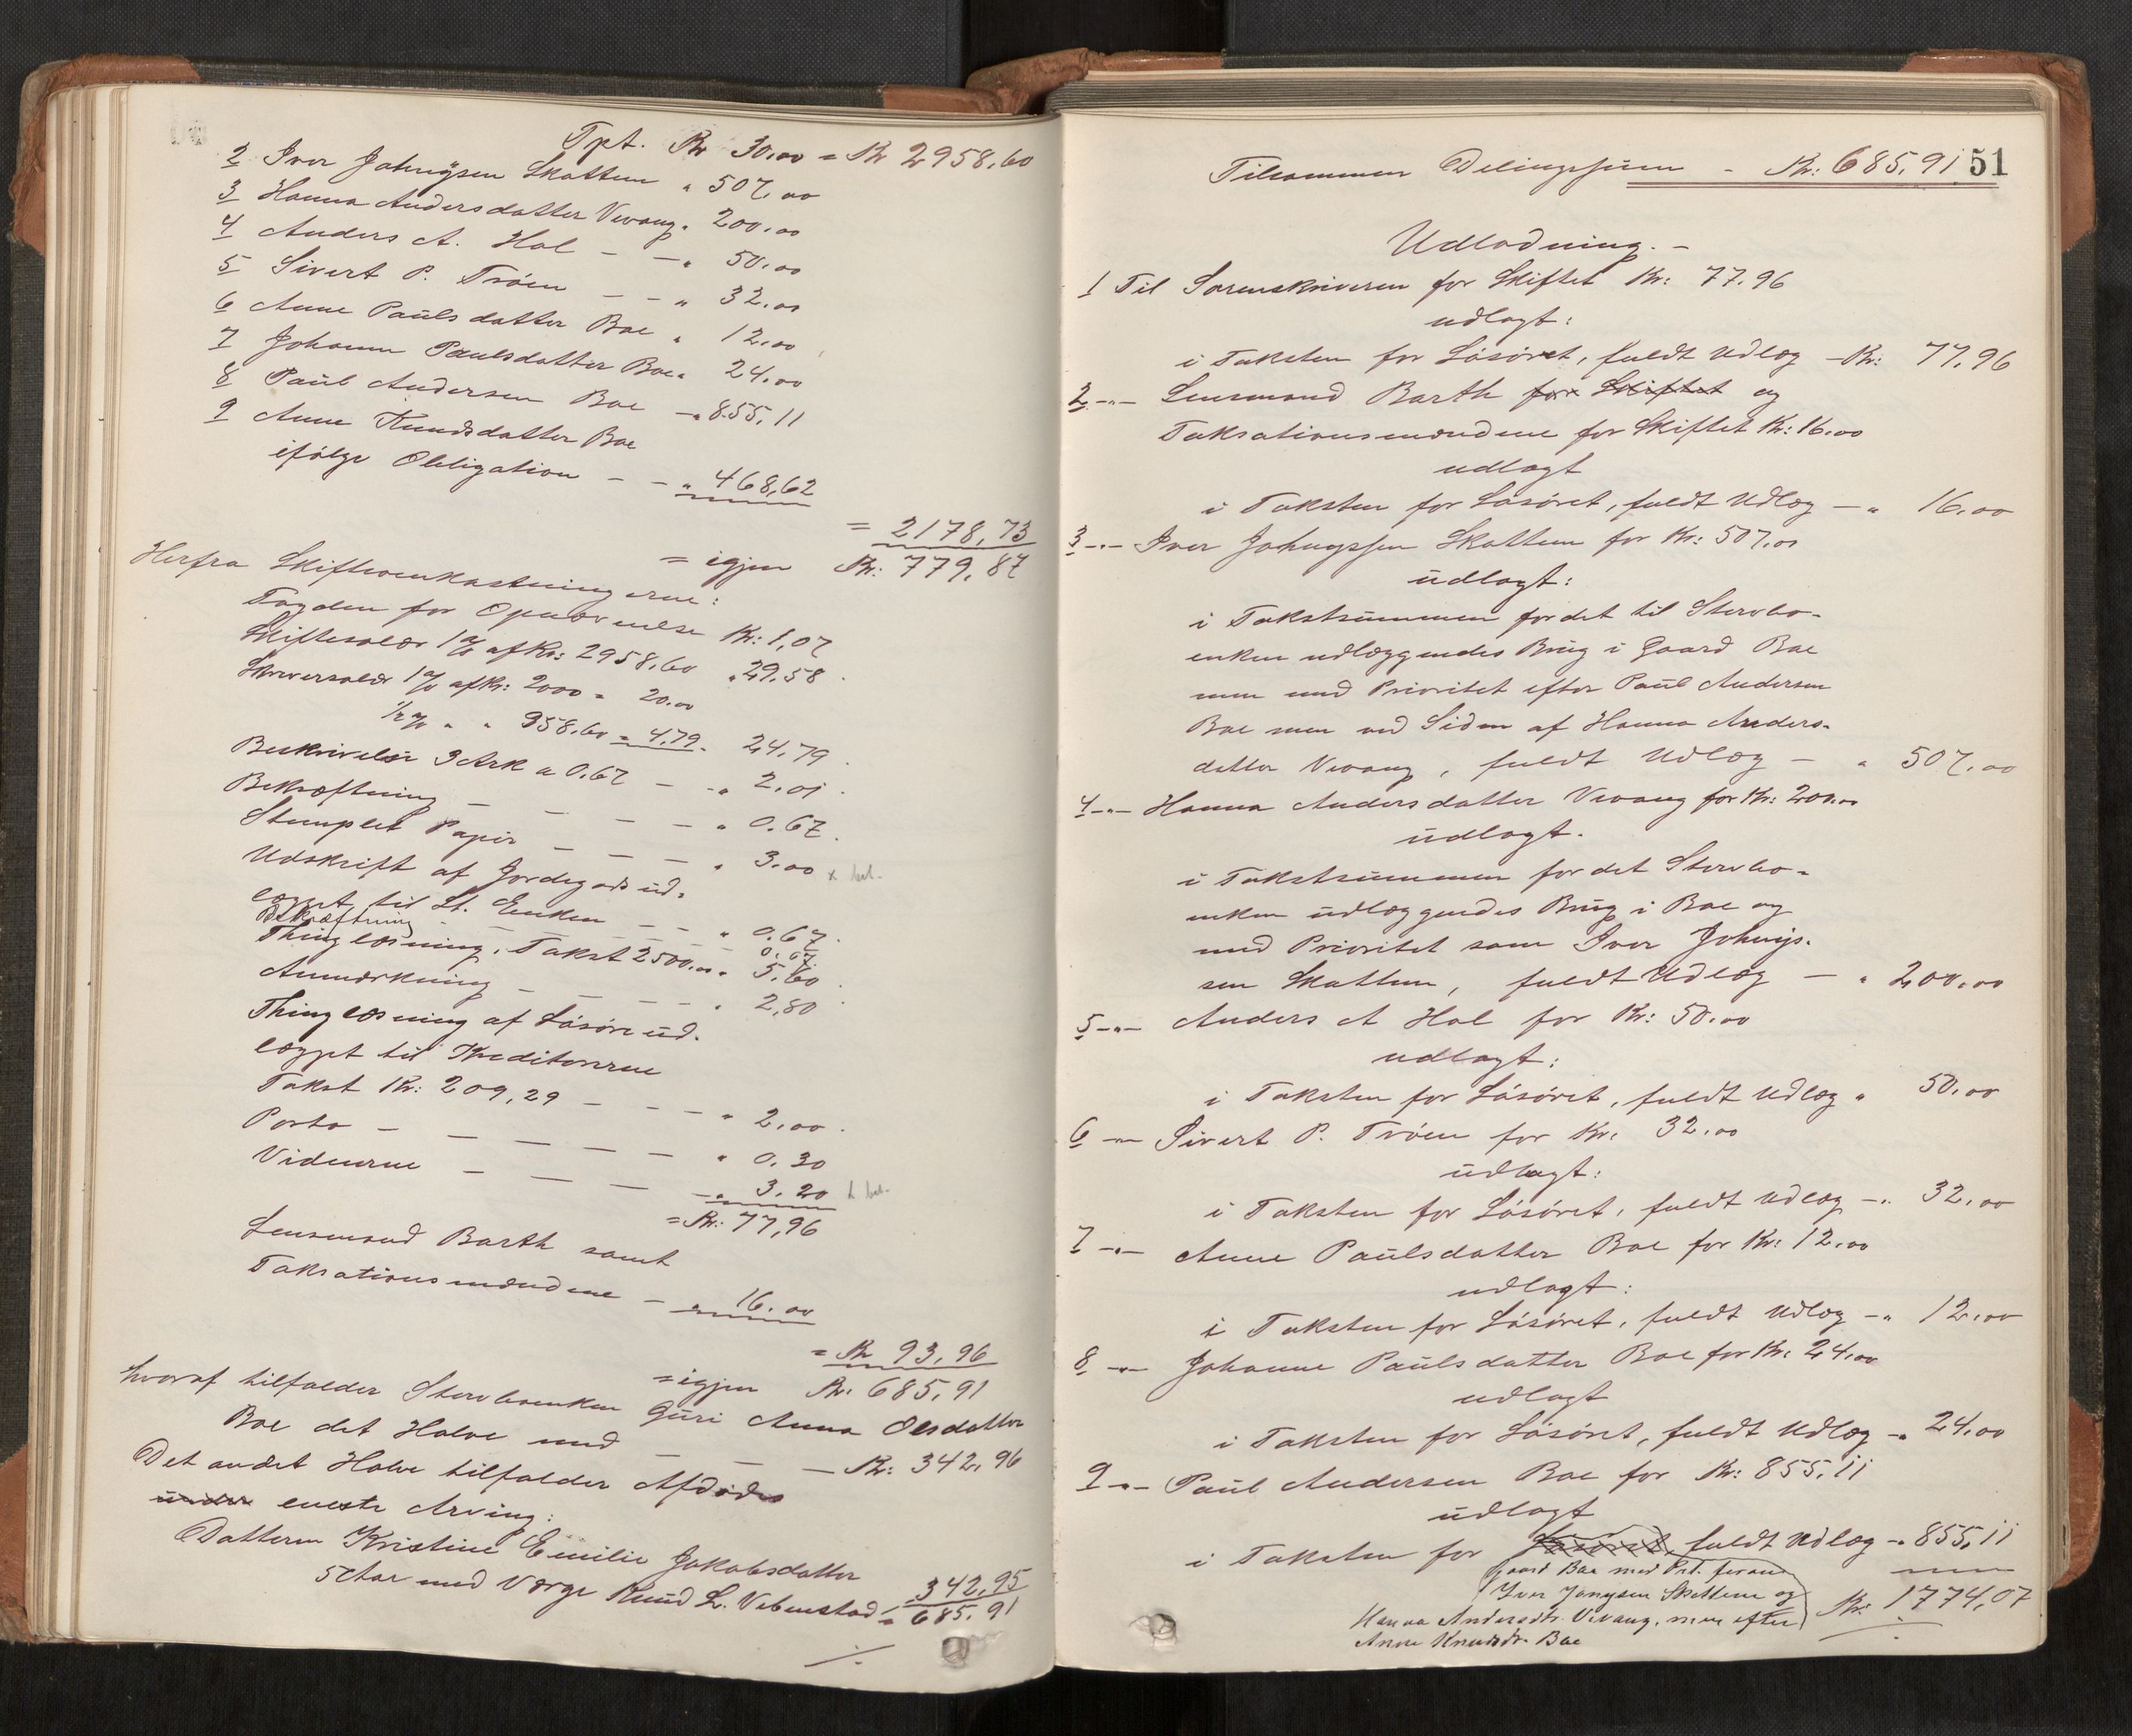 Tpt. Kr 30.00 = Kr 2958.60
2 Iver Johnysen Skattem „ 507.00
3 Hanna Andersdatter Vevang „ 200.00
4 Anders A. Hol – – „ 50.00
5 Sivert P. Tröen – – „ 32.00
6 Anne Paulsdatter Boe „ 12.00
7 Johanne Paulsdatter Boe „ 24.00
8 Paul Andersen Boe – „ 855.11
9 Anne Knudsdatter Boe
ifölge Obligation – – „ 468,62
= 2178,73
= igjen Kr: 779,87
Herfra Skifteomkostningerne:
Dagdem for Opnævnelse Kr: 1,07
Skiftesalær 1 % af Kr: 2958.60 „ 29.58
Skriversalær 1 % af Kr: 2000 = 20.00
1/2 % „ „ 958.60 = 4,79 „ 24,79
Beskrivelse 3 Ark a 0.67 – – „ 2,01
Bekræftning – – – – „ 0.67
Stemplet Papir – – – „ 3.00 x bet.
Udskrift af Jordegods ud-
lægget til St. Enken – – „ 0.67
Bekræftning – – – 0,67
Thinglæsning, Takst 2500.00 „ 5.60
Anmærkning – – – – „ 2,80
Thinglæsning af Lösöre ud-
lægget til Kreditorerne
Takst Kr: 209,29 – – – „ 2,00
Porto – – – – – „ 0.30
Vidnerne – – – – „ 3.20 x bet.
= Kr: 77,96
Lensmand Barth samt
Taksationsmændene – „ 16.00
= Kr 93,96
= igjen Kr: 685,91
hvoraf tilfalder Stervboenken Guri Anna Olsdatter
Boe det Halve med – – – Kr: 342,96
Det andet Halve tilfalder Afdödes
under eneste Arving:
Datteren Kristine Emilie Jakobsdatter
5 Aar med Værge Knud L. Vebenstad „ 342,95
= 685,91
./.
Tilsammen Delingssum – Kr: 685,91 51
Udlodning. –
1 Til Sorenskriveren for Skiftet Kr: 77.96
udlagt:
i Taksten for Lösöret, fuldt Udlæg – Kr: 77,96
2 –„– Lensmand Barth for Skiftet og
Taksationsmændene for Skiftet Kr: 16.00
udlagt
i Taksten for Lösöret, fuldt Udlæg – „ 16.00
3 –„– Iver Johnyssen Skattem for Kr: 507.00
udlagt:
i Takstsummen for det til Stervbo-
enken udlæggendes Brug i Gaard Boe
men med Prioritet efter Paul Andersen
Boe men ved Siden af Hanna Anders-
datter Vevang, fuldt Udlæg – „ 507.00
4 –„– Hanna Andersdatter Vevang for Kr: 200.00
udlagt.
i Takstsummen for det Stervbo-
enken udlæggendes Brug i Boe og
med Prioritet som Iver Johnys-
sen Skattem, fuldt Udlæg – „ 200.00
5 –„– Anders A Hol for Kr: 50.00
udlagt:
i Taksten for Lösöret, fuldt Udlæg „ 50.00
6 –„– Sivert P. Tröen for Kr. 32.00
udlagt:
i Taksten for Lösöret, fuldt Udlæg – „ 32.00
7 –„– Anne Paulsdatter Boe for Kr: 12.00
udlagt:
i Taksten for Lösöret, fuldt Udlæg – „ 12.00
8 –„– Johanne Paulsdatter Boe for Kr. 24.00
udlagt
i Taksten for Lösöret, fuldt Udlæg – „ 24.00
9 –„– Paul Andersen Boe for Kr: 855,11
udlagt
i Taksten for Lösöret, fuldt Udlæg – „ 855,11
Gaard Boe med Prt. foran
Iver Jonysen Skattem og
Hanna Andersdtr. Vevang, men efter Kr: 1774,07
Anne Knudsdr. Boe ./.